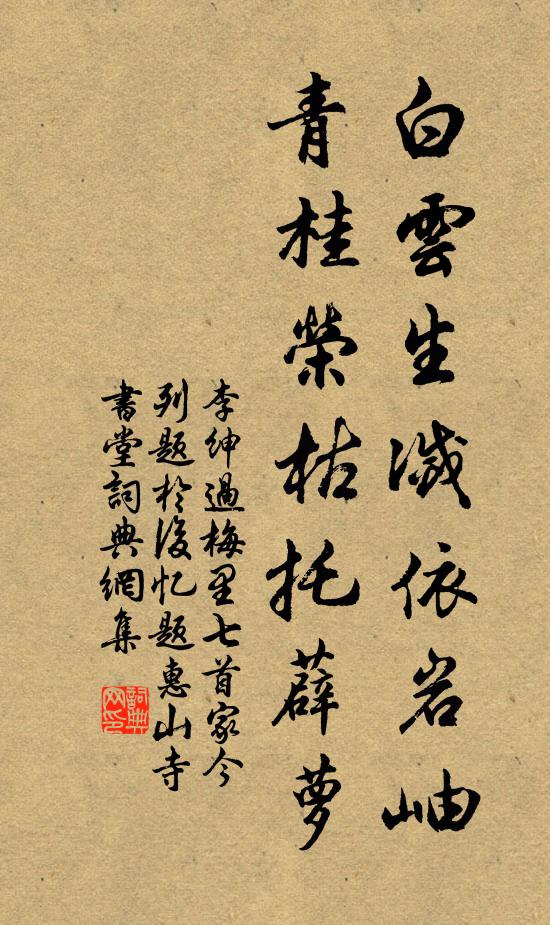 白雲生滅依岩岫
青桂榮枯托薜蘿
李紳過梅里七首家今
列題於後忆題惠山寺
書堂詞典網集
詞典
网印